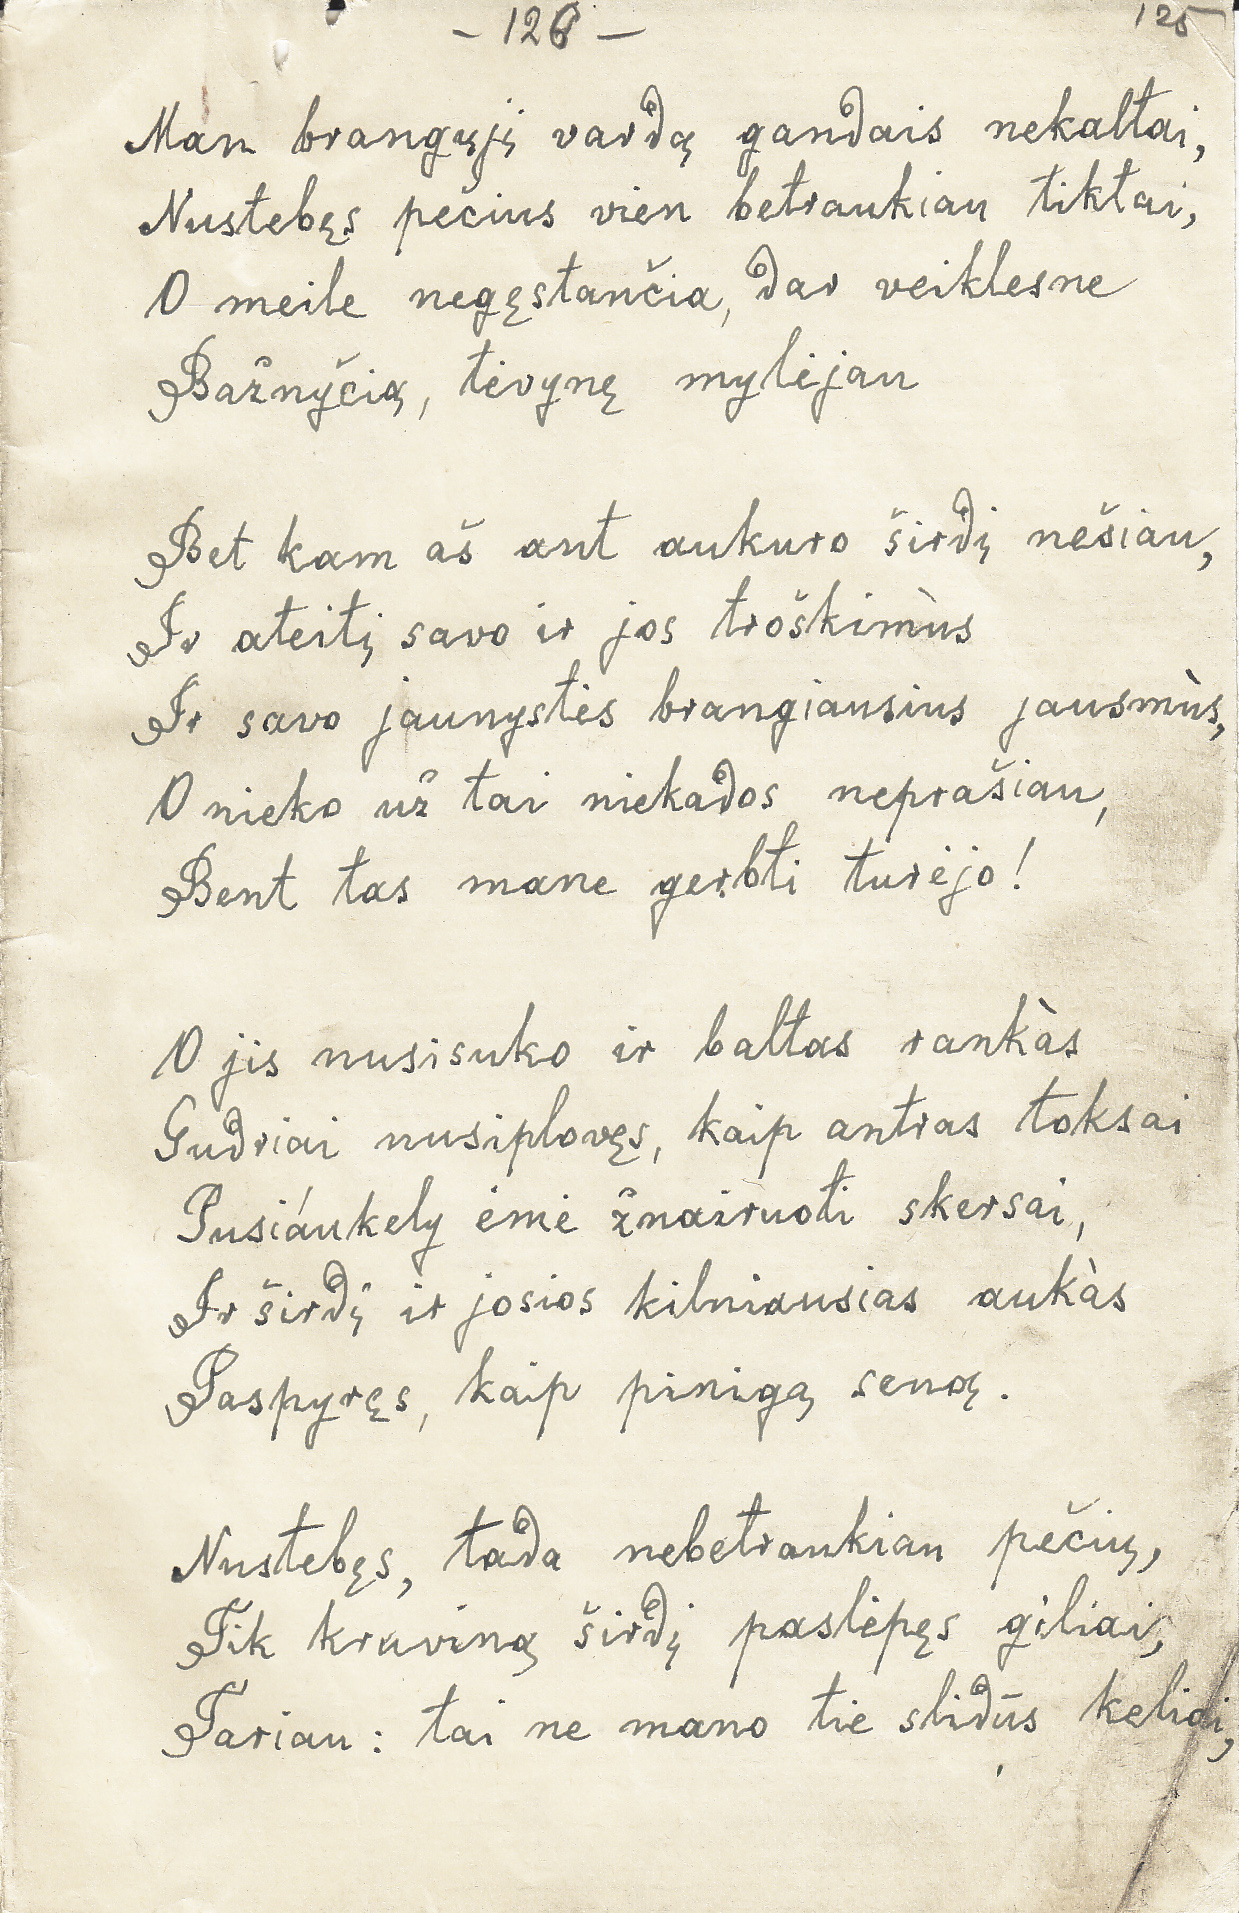 - 126 -
125
Man brangųjį vardą gandais nekaltai,
Nustebęs pečius vien betraukiau tiktai,
O meile negęstančia, dar veiklesne
Bažnyčią, tėvynę mylėjau
Bet kam aš ant aukuro širdį nešiau,
Ir ateitį savo ir jos troškimùs
Ir savo jaunystės brangiausius jausmùs,
O nieko už tai niekados neprašiau,
Bent tas mane gerbti turėjo!
O jis nusisuko ir baltas rankàs
Gudriai nusiplovęs, kaip antras toksai
Pusiáukely ėmė žnairuoti skersai,
Ir širdį ir josios kilniausias aukàs
Paspyręs, kaip pinigą seną.
Nustebęs, tada nebetraukiau pečių,
Tik kruviną širdį paslėpęs giliai,
Tariau: tai ne mano tie slidūs keliai,